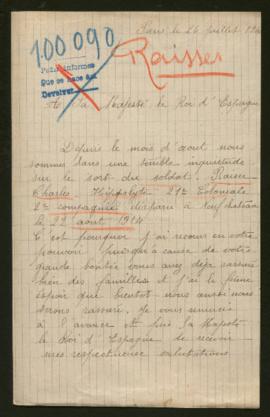 Paris le 26 Juillet
100090
Raisser
Pedir informes
que se hace au
Devolver
A Sa Majesté le Roi d'Espagne
Depuis le mois d'aout nous
sommes dans une terrible inquietude
sur le sort du soldat. Raisser
Charles. Hippolyte 21e Coloniale
2e compagnie disparu à Neufchateau
le 22 aout 1914
C'est pourquoi j'ai recours en votre
pouvoir puisqu'a cause de votre
grande bontée vous avez déja rassuré
bien des familles et j'ai le ferme
espoir que bientot nous aussi nous
serons rassuré. Je vous remercie
a l'avance et prie Sa Majesté
le Roi d'Espagne de recevoir
mes respectueuses salutations